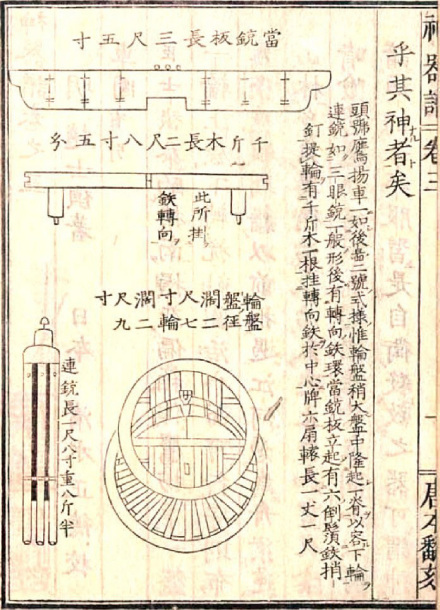 神器譜 卷三
唐本翻刻
乎其神者矣
頭號鷹揚車一如後畫二號式樣惟輪盤稍大盤中隆起一脊以容下輪
連銃如三眼銃一般形後有轉向鉄環當銃板立起有六倒鬚鉄捎
釘提輪有千斤木一根挂轉向鉄於中心牌六扇轅長一丈一尺
當銃板長三尺五寸
千斤木長二尺八寸五分
此所掛
鉄轉向
輪盤
盤徑
濶二
寸七
尺輪
濶二
寸九
連銃長一尺八寸重八斤半